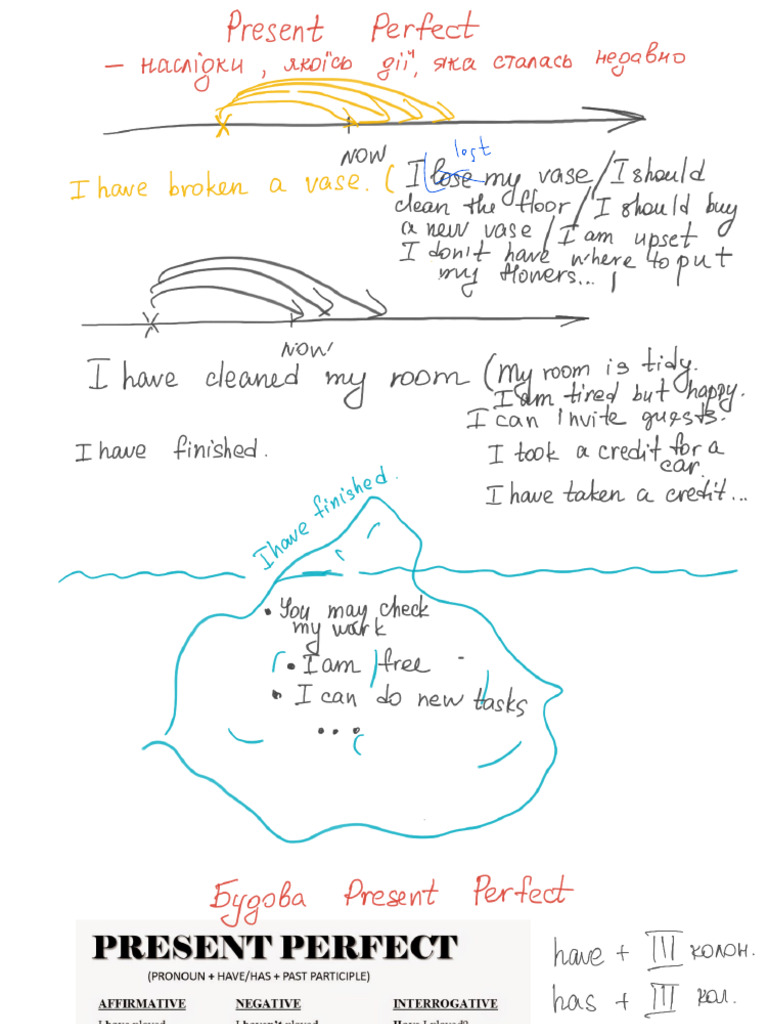 Present Perfect
– наслідки, якоїсь дії, яка сталась недавно
NOW
I have broken a vase. (I lose lost my vase / I should
clean the floor / I should buy
a new vase / I am upset
I don't have where to put
my flowers... )
NOW
I have cleaned my room (My room is tidy.
I am tired but happy.
I can invite guests.
I have finished.
I took a credit for a
car.
I have taken a credit...
I have finished.
• You may check
my work
• I am free
• I can do new tasks
...
Будова Present Perfect
PRESENT PERFECT
(PRONOUN + HAVE/HAS + PAST PARTICIPLE)
AFFIRMATIVE NEGATIVE INTERROGATIVE
I have played I haven't played Have I played?
have + III колон.
has + III кол.